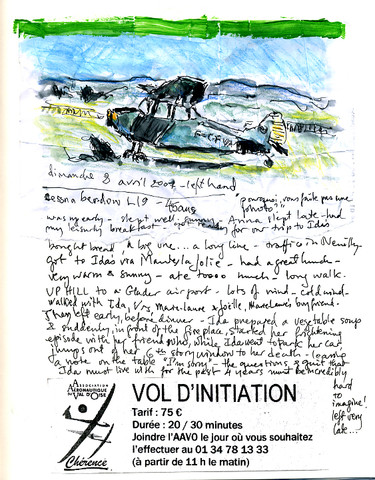 F-GCFV
dimanche 8 avril 2007 - left hand
Cessna L19 -
"pourquoi vous faite pas une photo?"
was up early - slept well. Anna slept late - had
my leisurely breakfast - for our trip to Ida's
bought bread. A big one... a long line - traffic in Neuilly.
got to Ida's via Mantes la Jolie - had a great lunch -
very warm & sunny - ate toooo much - long walk.
UP HILL to a Glider airport - lots of wind - cold wind.
walked with Ida, Yrs, Marie-laure & Joëlle, Marie Laure's boyfriend.
Then left early, before dinner - Ida prepared a vegetable soup
& suddenly, in front of the fireplace, started her frightening
episode with her friend who, while Ida went to park her car
jumps out of her 6th story window to her death - leaving
a note on the table "I'm sorry" - the questions & guilt that
Ida must live with for the past 4 years must be incredibly
hard
to
imagine!
left very
late...
ASSOCIATION
AÉRONAUTIQUE
DU VAL D'OISE
Chérence
VOL D'INITIATION
Tarif : 75 €
Durée : 20 / 30 minutes
Joindre l'AAVO le jour où vous souhaitez
l'effectuer au 01 34 78 13 33
(à partir de 11 h le matin)